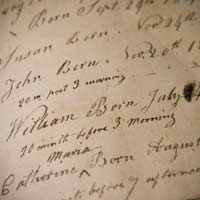 Born Sept. 29th
Susan Born. Nov. 24th
John Born. Nov. 20th
20 m past 3 morning
William Born July
20 minits before 3 morning
Maria
Catherine Born August
before 7 afternoon